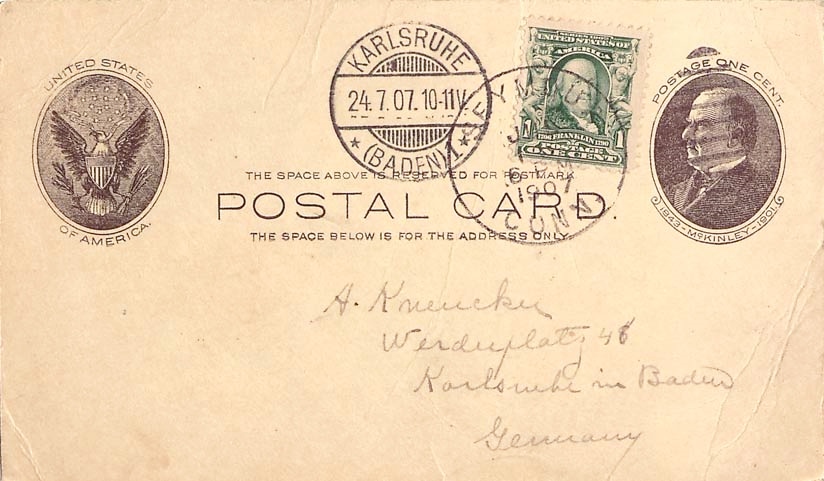 UNITED STATES
OF AMERICA.
KARLSRUHE
24.7.07.10-11V.
* (BADEN) 1 *
SERIES 1902
UNITED STATES OF
AMERICA
1 1
1706 FRANKLIN 1790
POSTAGE
ONE CENT
SEYMOUR
1907
CONN.
POSTAGE ONE CENT.
1843-McKINLEY-1901.
THE SPACE ABOVE IS RESERVED FOR POSTMARK
POSTAL CARD.
THE SPACE BELOW IS FOR THE ADDRESS ONLY.
A. Kneucker
Werderplatz 48
Karlsruhe in Baden
Germany